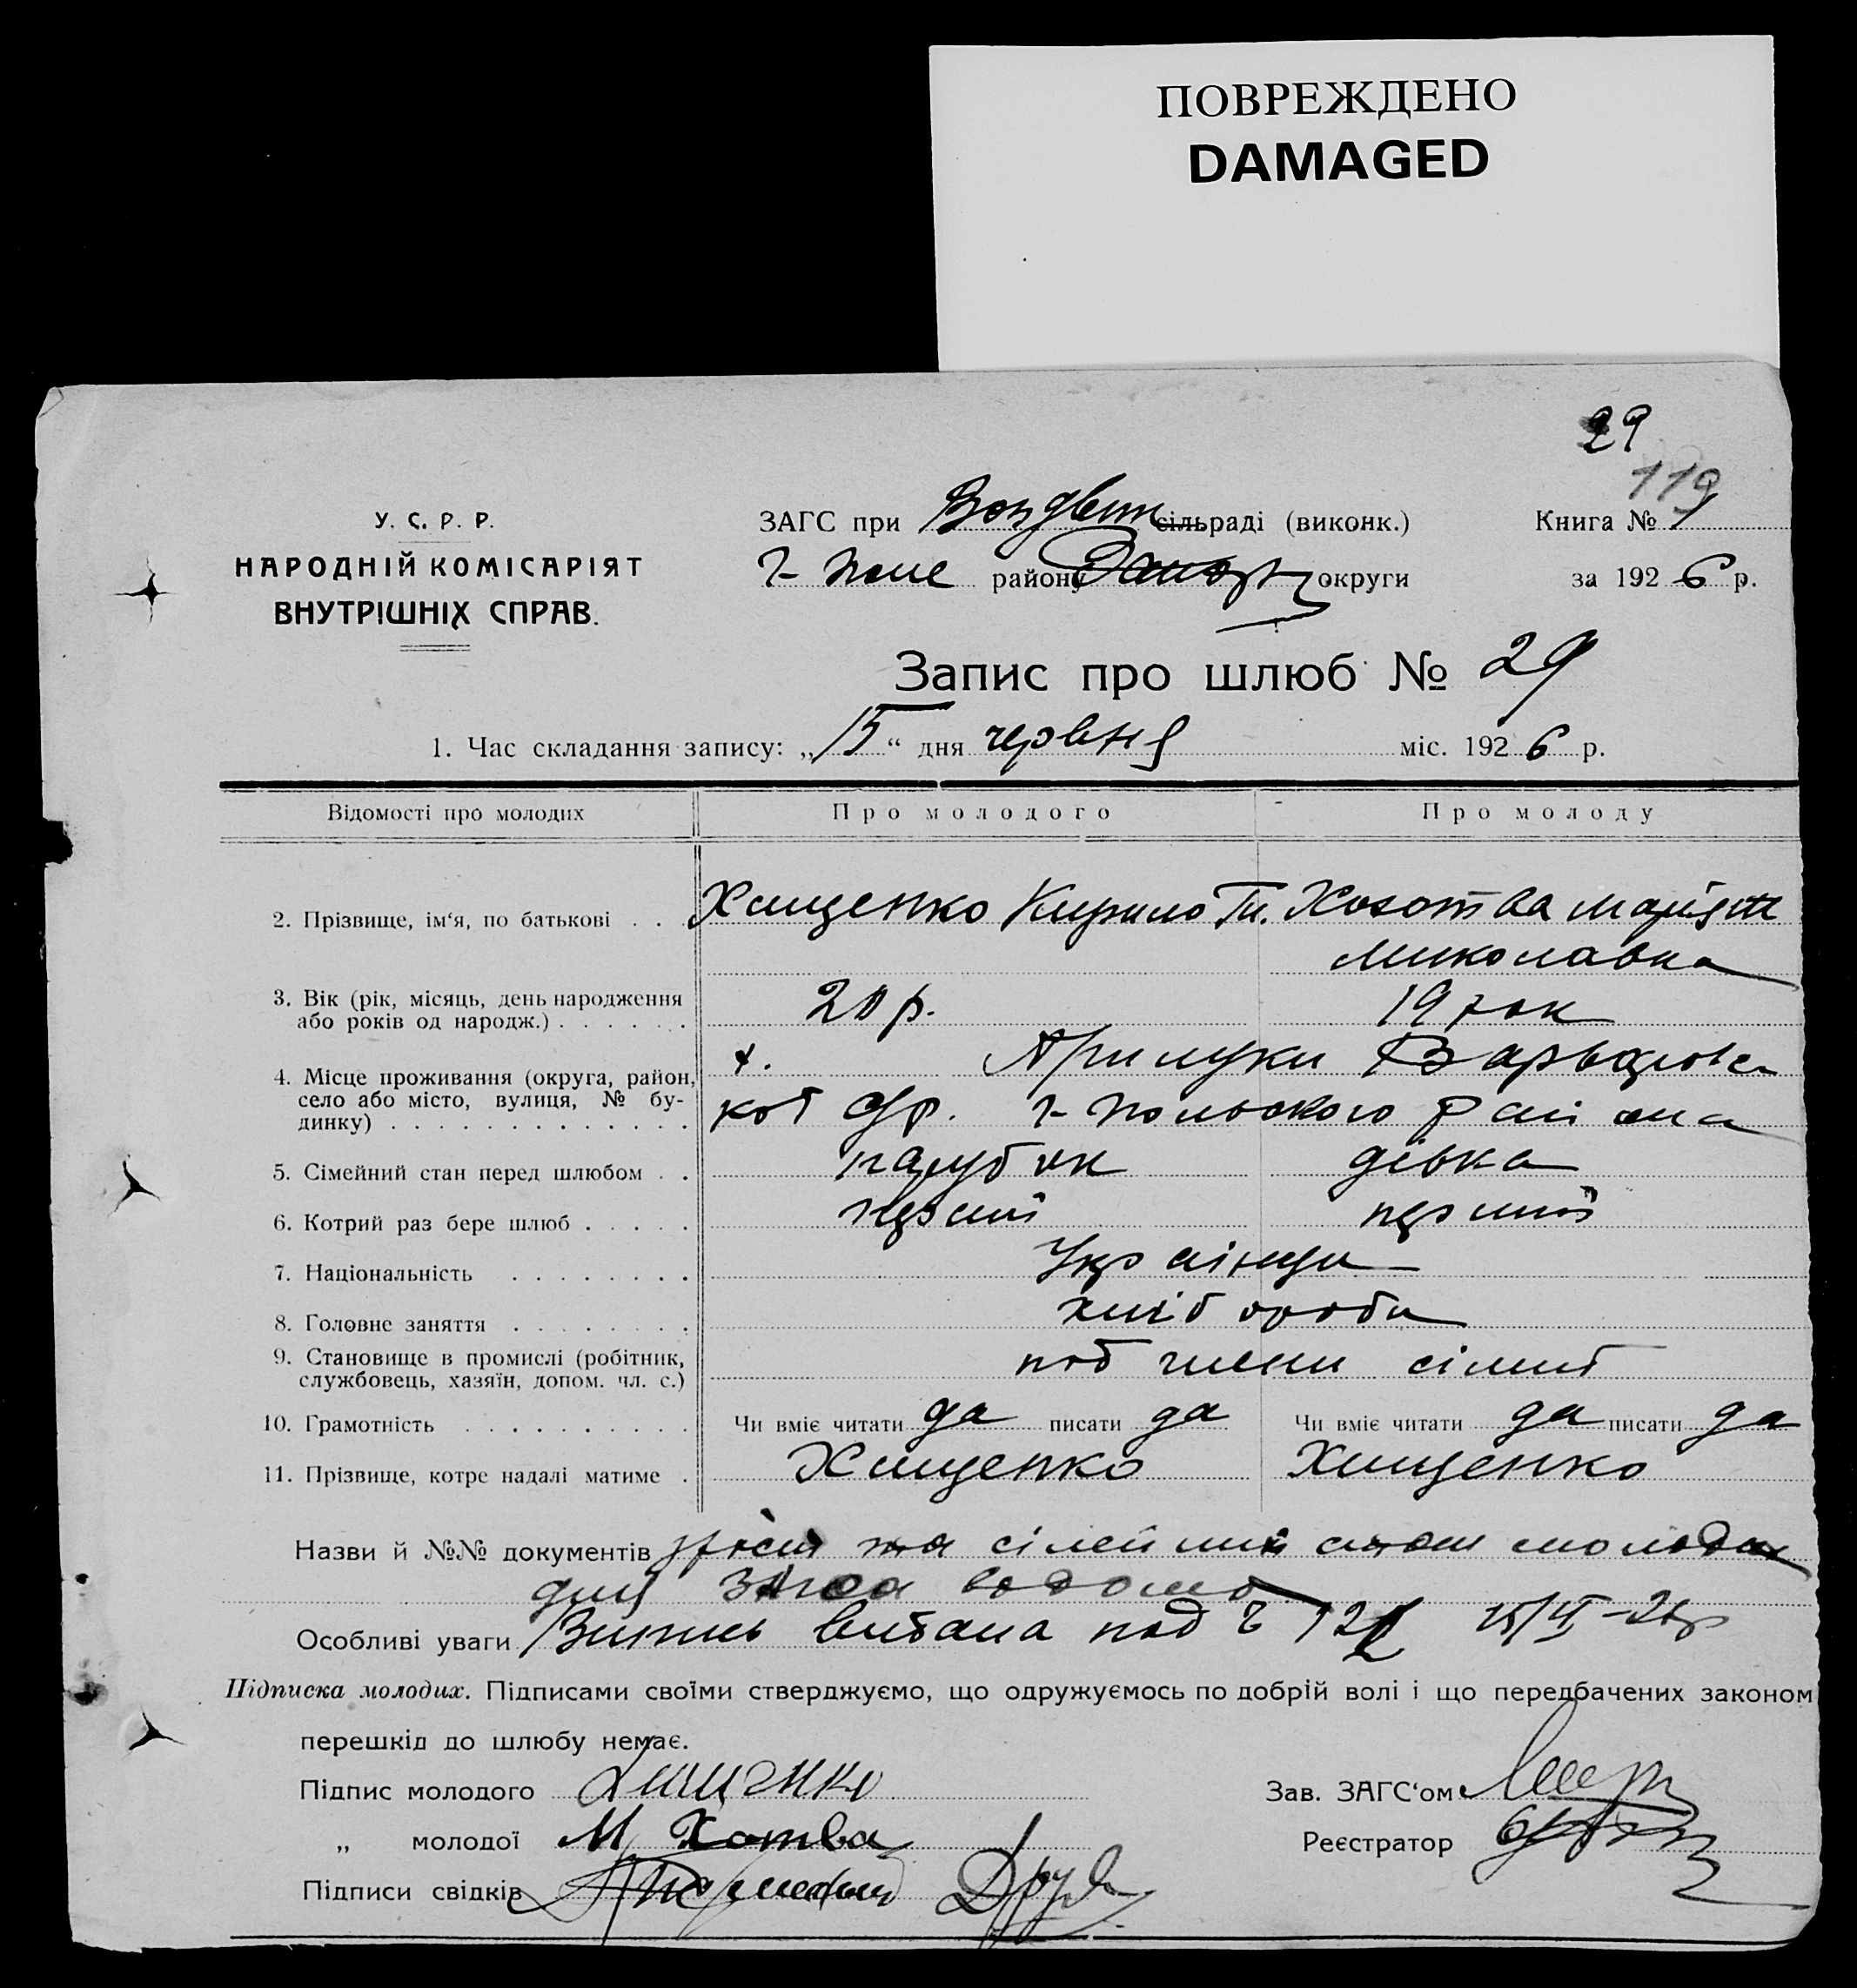 ПОВРЕЖДЕНО
DAMAGED
29
119
У. С. Р. Р.
НАРОДНІЙ КОМІСАРІЯТ
ВНУТРІШНІХ СПРАВ.
ЗАГС при Воздвиж сільраді (виконк.)
Книга № 1
Г-Поле району Запор округи
за 1926 р.
Запис про шлюб № 29
1. Час складання запису: „15“ дня червня міс. 1926 р.
Відомості про молодих
Про молодого
Про молоду
2. Прізвище, ім‘я, по батькові . . . Хищенко Кирило Ти. марія
миколавна
3. Вік (рік, місяць, день народження
або років од народж.) . . . . . . 20 р. 19 рок
4. Місце проживання (округа, район, х. Прилуки
село або місто, вулиця, № бу- Г-Польского району
динку) . . . . . . . . . . . . .
5. Сімейний стан перед шлюбом . . парубок дівка
6. Котрий раз бере шлюб . . . . . перший перший
7. Національність . . . . . . . . Українци
8. Головне заняття . . . . . . . . хлібороби
9. Становище в промислі (робітник,
службовець, хазяїн, допом. чл. с.) члени сімиї
10. Грамотність . . . . . . . . . . Чи вміє читати да писати да Чи вміє читати да писати да
11. Прізвище, котре надалі матиме . Хищенко Хищенко
Назви й №№ документів зріст та сімейний стан молодих
для ЗАГСа відомо
Особливі уваги Випись видана под 15/VI-26р
Підписка молодих. Підписами своїми стверджуємо, що одружуємось по добрій волі і що передбачених законом
перешкід до шлюбу немає.
Підпис молодого Хищенко
Зав. ЗАГС‘ом
„ молодої М
Реєстратор
Підписи свідків